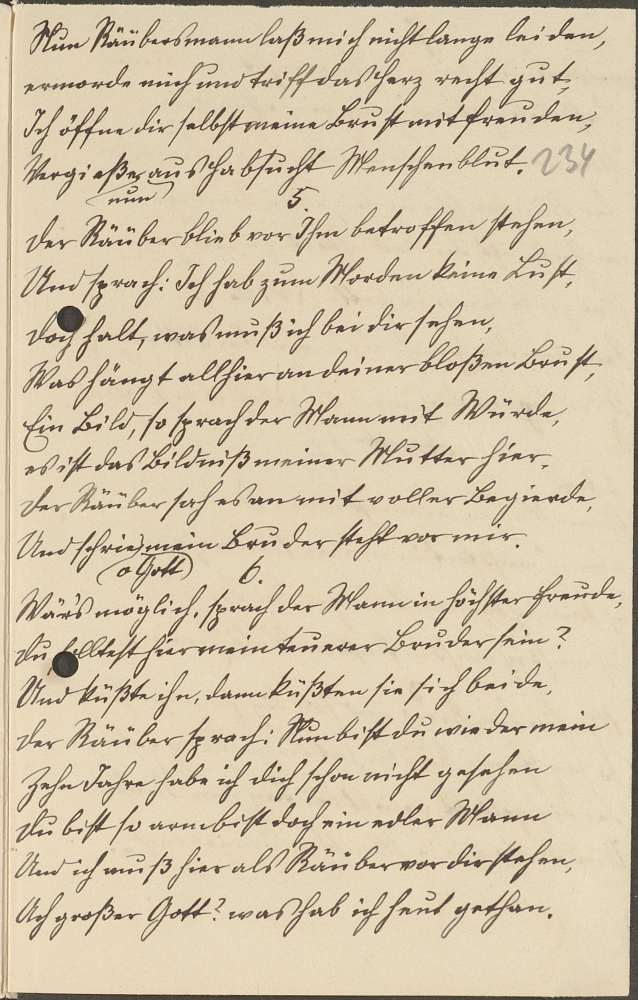 Nun Räubersmann laß mich nicht lange leiden,
ermorde mich und triff das Herz recht gut,
Ich öffne dir selbst meine Brust mit freuden,
Vergieße aus Habsucht Menschenblut. 234
nun
5.
Der Räuber blieb vor Ihm betroffen stehen,
Und sprach: Ich hab zum Morden keine Lust,
doch halt, was muß ich bei dir sehen,
Was hängt allhier an deiner bloßen Brust,
Ein Bild, so sprach der Mann mit Würde,
es ist das Bildniß meiner Mutter hier,
der Räuber sah es an mit voller Begierde,
Und schrie, mein Bruder steht vor mir.
o Gott
6.
Wär's möglich, sprach der Mann in höchster freude,
du solltest hier mein teuerer Bruder sein?
Und küßte ihn, dann küßten sie sich beide,
der Räuber sprach: Nun bist du wieder mein
Zehn Jahre habe ich dich schon nicht gesehen
du bist so arm bist doch ein edler Mann
Und ich muß hier als Räuber vor dir stehen,
Ach großer Gott? was hab ich heut gethan.